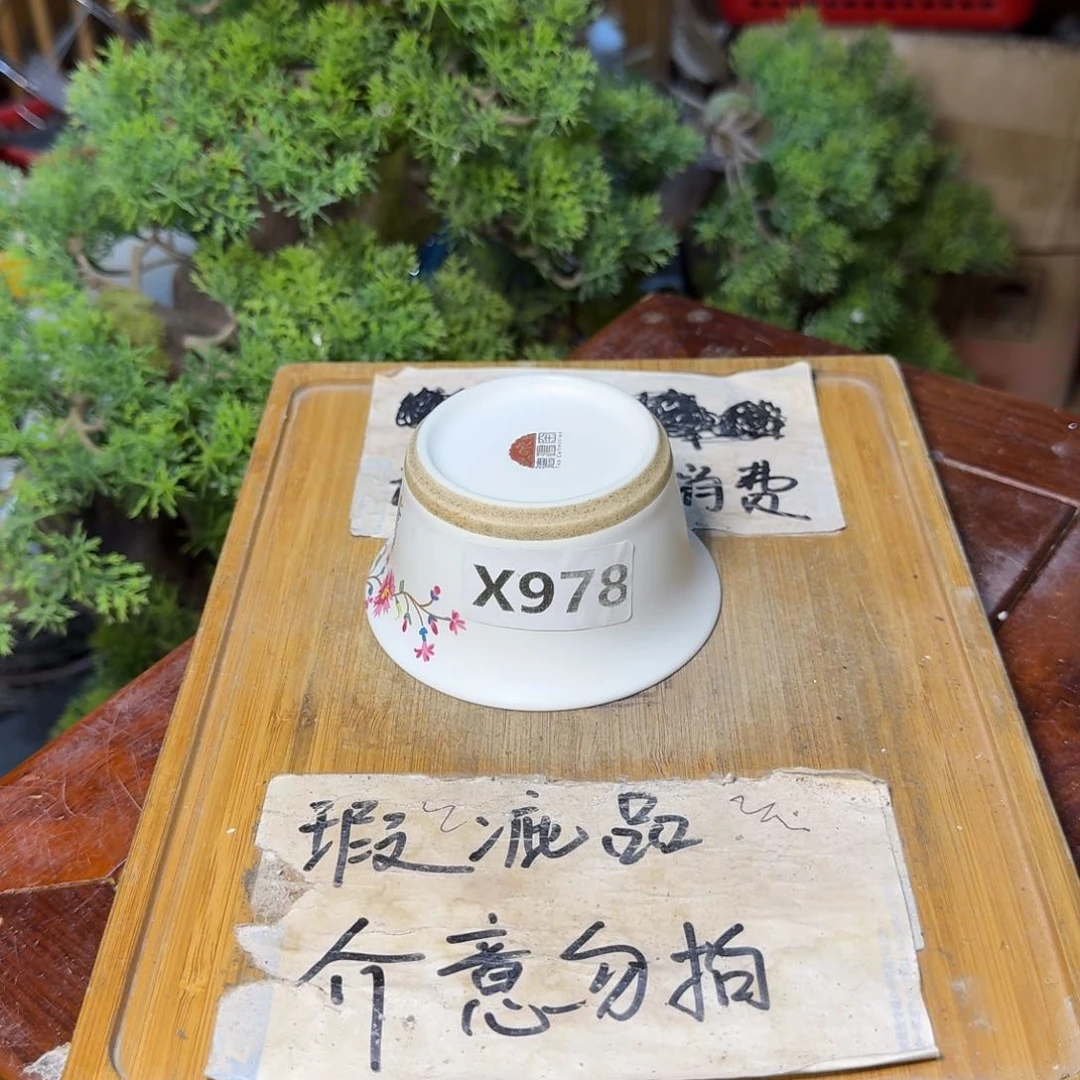 消费
X978
瑕疵品
介意勿拍